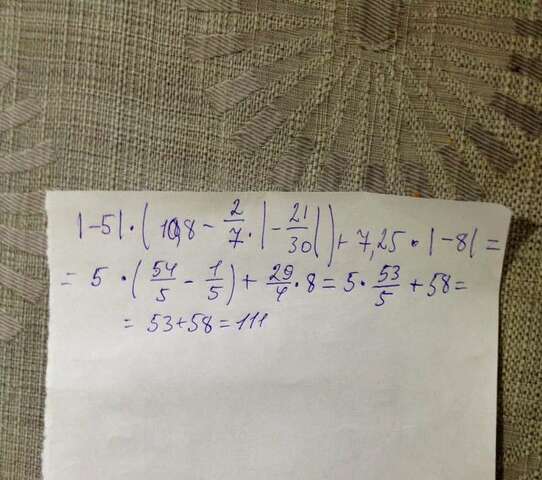 |-5|·(10,8 - 2/7·|-21/30|) + 7,25·|-8| =
= 5·(54/5 - 1/5) + 29/4·8 = 5·53/5 + 58 =
= 53+58=111